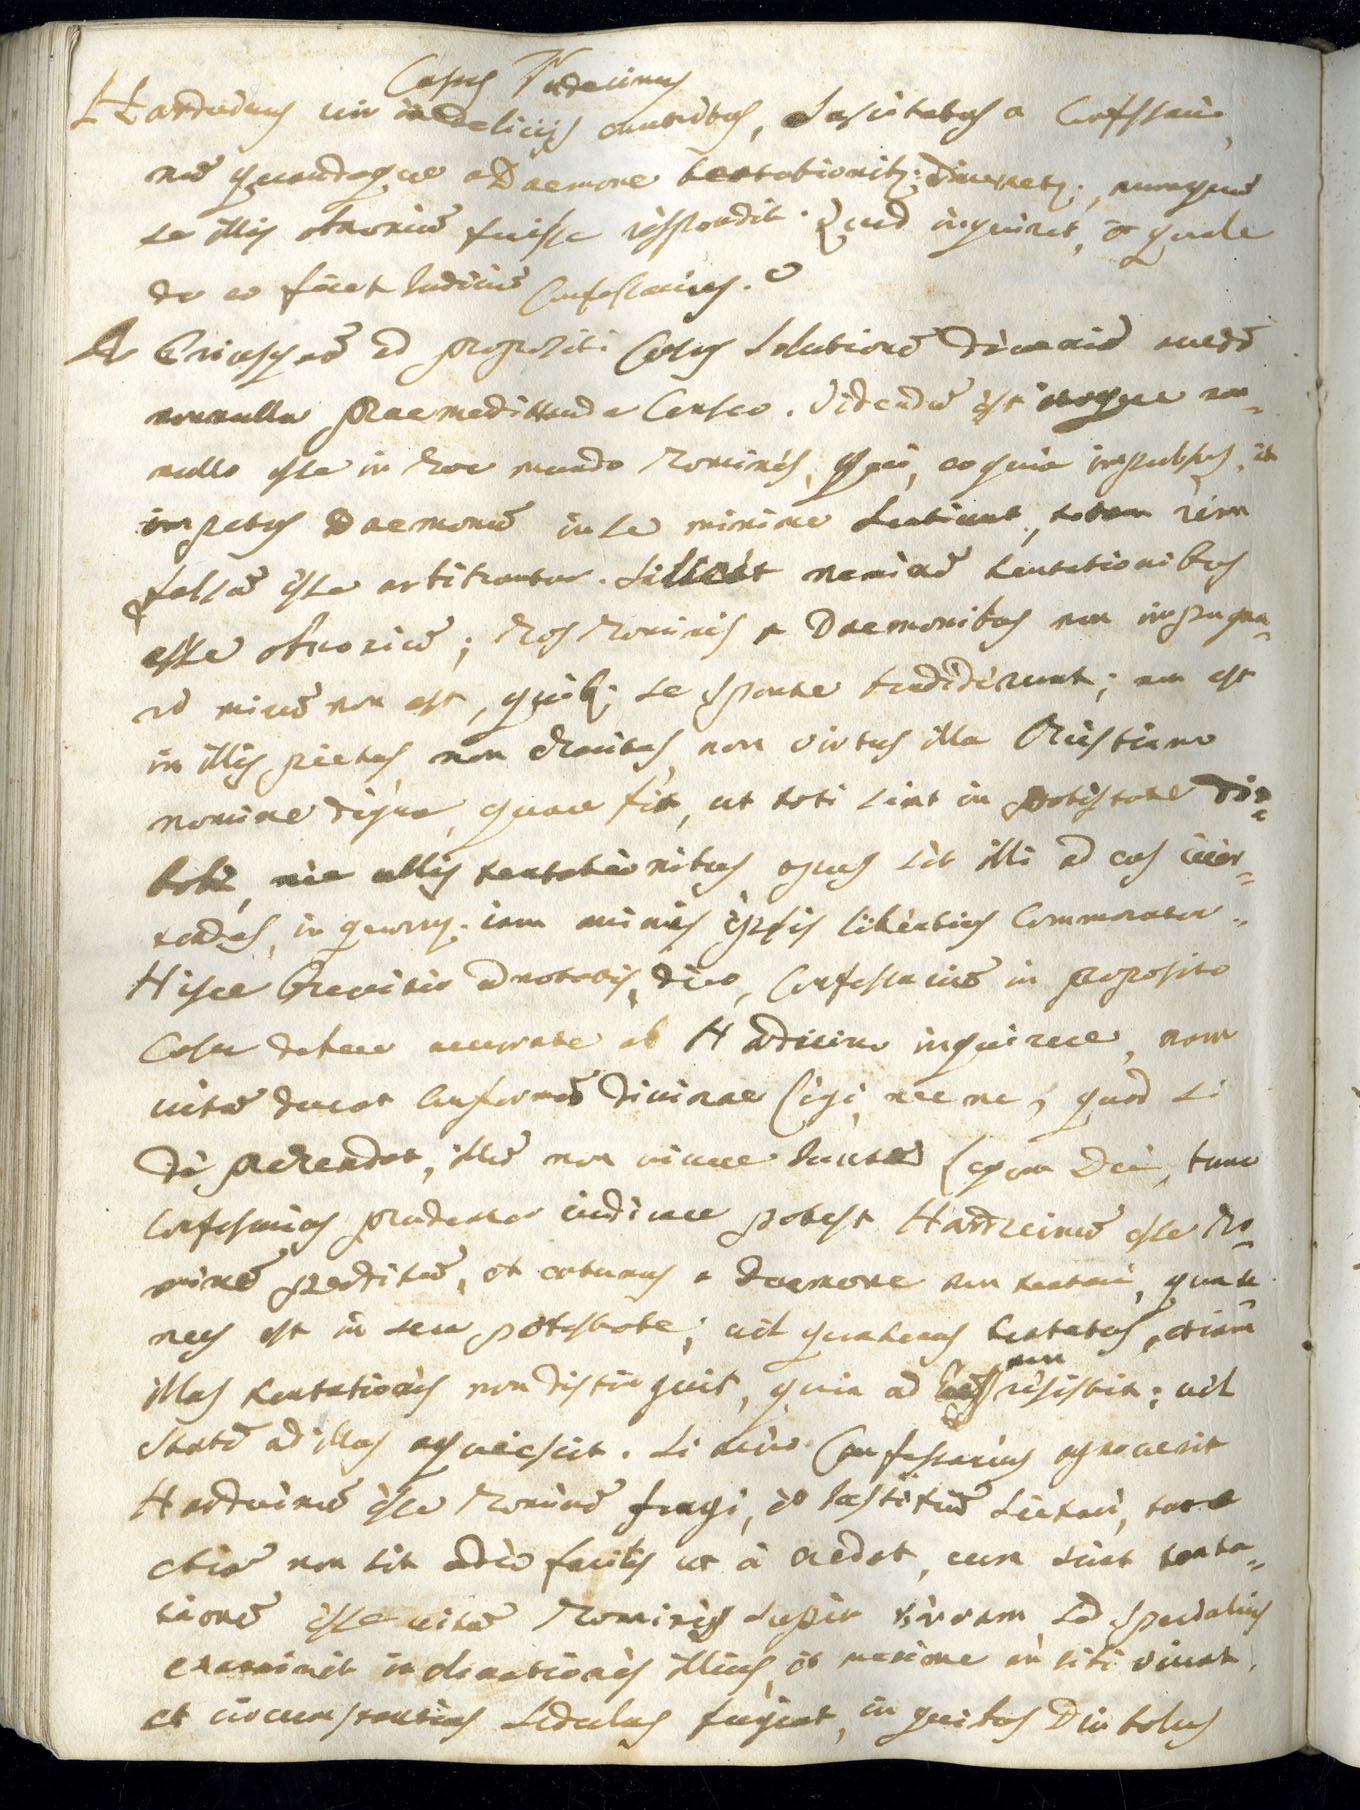 Casus Undecimus
Harduinus vir in deliciis enutritus, suscitatus a Confessario,
nũ quandoque a Daemone tentationib; divexetr, nunquã
se illis obnoxiũ fuisse respondit. Quid inquiret, et quale
de eo feret Iudiciũ Confessarius?
Priusquã ad propositi Casus solutionẽ deveniã
nonnulla praemeditanda Censeo. Videndũ est non-
nullos esse in hoc mundo homines, qui, eo quia impulsus, et
impetus Daemonũ in se minime sentiunt, rem
falsã esse arbitrantur. Scilicet neminẽ tentationibus
esse obnoxiũ; hos homines a Daemonibus non impugna-
ri mirũ non est, quib; se sponte tradiderunt; non est
in illis pietas, non charitas, non virtus illa Christiano
nomine digna, quare fit, ut toti sint in potestate dia-
boli, nec ullis tentationibus opus sit illi ad eos ever-
tendos, in quorum iam animis ipsis libentius commoratur.
Hisce breviter adnotatis, dico, Confessariũ in proposito
Casu debere accurate ab Harduino inquirere, num
vitã ducat conformẽ divinae legi, nec ne, quod si
deprehendat, illũ non vivere iuxta legem Dei, tunc
Confessarius prudenter iudicare potest Harduinũ esse ho-
minẽ perditũ, et a Daemone non tentari, quate-
nus est in sua potestate; vel quatenus tentatus, etiam
illas tentationes non distinguit, quia ad eas non resistit; vel
statĩ ad illas acquiescit. Si vero Confessarius agnoverit
Harduinũ esse hominẽ frugi, et Iustitiã sectari, tunc
etiã non sit adeo facilis ut ei credat, cum sciat tenta-
tionẽ esse vitã hominis super terram, sed specialius
examinet inclinationes illius, et maxime an sibi vivat,
et circumstantias sedulus fugiat, in quibus Diabolus